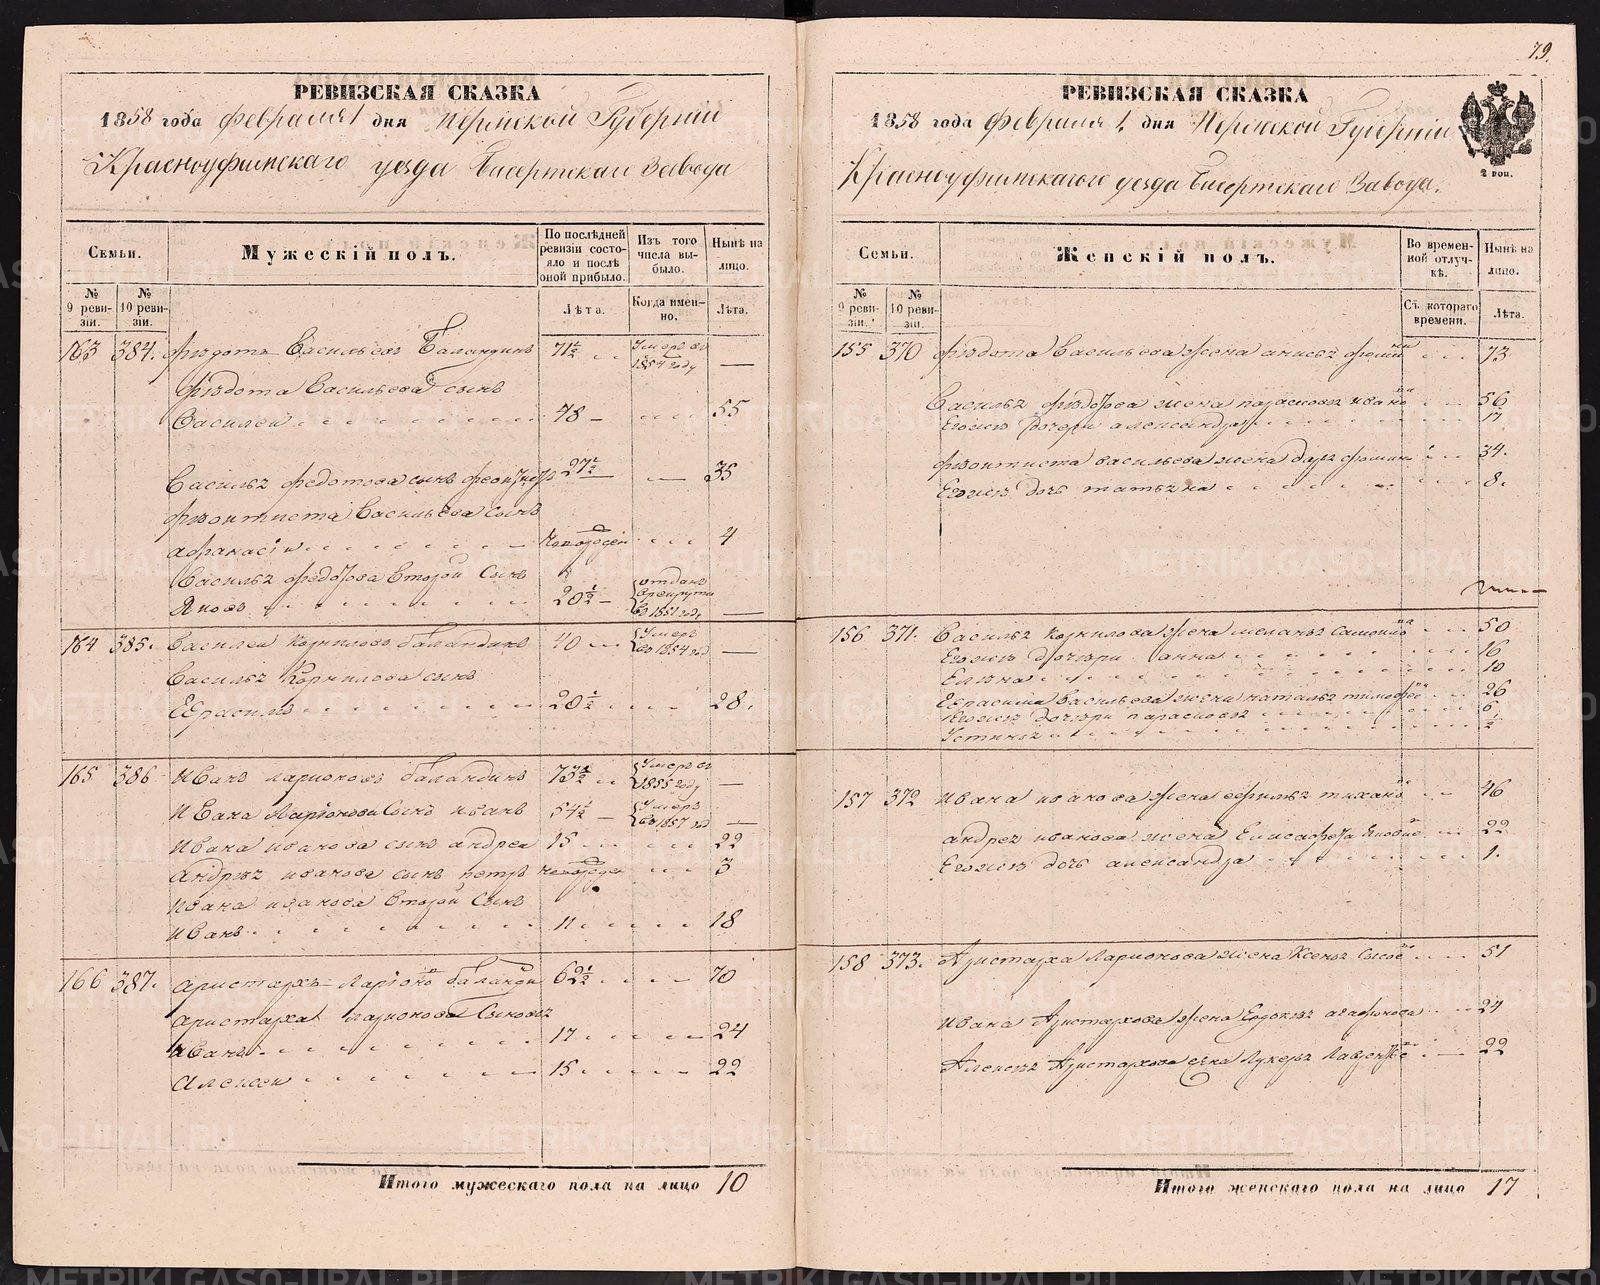 79.
РЕВИЗСКАЯ СКАЗКА
1858 года февраля 1 дня Пермской Губернии
Красноуфимскаго уезда Бисертскаго Завода
Семьи.
Мужескій полъ.
По послѣдней ревизіи состояло и послѣ оной прибыло.
Изъ того числа выбыло.
Нынѣ на лицо.
№ 9 ревизіи.
№ 10 ревизіи.
Лѣта.
Когда именно.
Лѣта.
163 384. Федотъ Васильевъ Баландинъ 71½ Умеръ въ 1854 году —
Федота Васильева сынъ
Василеи 48 — 55
Василья Федотова сынъ 27½ — 35
Феоктиста Васильева сынъ
Афанасіи новорожден 4
Василья Федотова второй сынъ
Яковъ 20½ — отданъ в рекруты в 1851 году —
164 385. Василеи Корниловъ Баландинъ 40 Умеръ в 1854 год —
Василья Корнилова сынъ
Герасимъ 20½ 28.
165 386 Иванъ Ларионовъ Баландинъ 73½ Умеръ въ 1855 году —
Ивана Ларіонова Сынъ Иванъ 54½ — Умеръ в 1857 год —
Ивана Иванова сынъ Андреи 15 22
Андрея Иванова сынъ Петръ новорожден 3
Ивана Иванова Второй Сынъ
Иванъ 11 18
166 387. Аристархъ Ларіоно Баланди 62½ 70
Аристарха Ларионова Сыновья
Иванъ 17 24
Алексеи 15 22
Итого мужескаго пола на лицо 10
РЕВИЗСКАЯ СКАЗКА
1858 года февраля 1. дня Пермской Губерніи
Красноуфимскаго уезда Бисертскаго Завода.
2 коп.
Семьи.
Женскій полъ.
Во временной отлучкѣ.
Нынѣ на лицо.
№ 9 ревизіи.
№ 10 ревизіи.
Съ котораго времени.
Лѣта.
155 370 Федота Васильева жена Анисья 73
Василья Федотова жена Парасковья Ивано 56
Егожъ дочери Александра 17
Феоктиста Васильева жена Дарья 34.
Егожъ дочь Татьяна 8.
156 371. Василья Корнилова жена Меланья Самойло 50
Егожъ дочери Анна 16
Елена 10
Герасима Васильева жена Наталья Тимофее 26
Егожъ дочери Парасковья 6
Устинья ½
157 372 Ивана Иванова жена Тихано 46
Андрея Иванова жена Елисафета 22
Егожъ дочь Александра 1.
158 373. Аристарха Ларионова жена Ксенья Сысое 51
Ивана Аристархова жена Евдокья Агафонова 24
Алексея Аристархова жена Лукерья Лавренте 22
Итого женскаго пола на лицо 17
METRIKI.GASO-URAL.RU